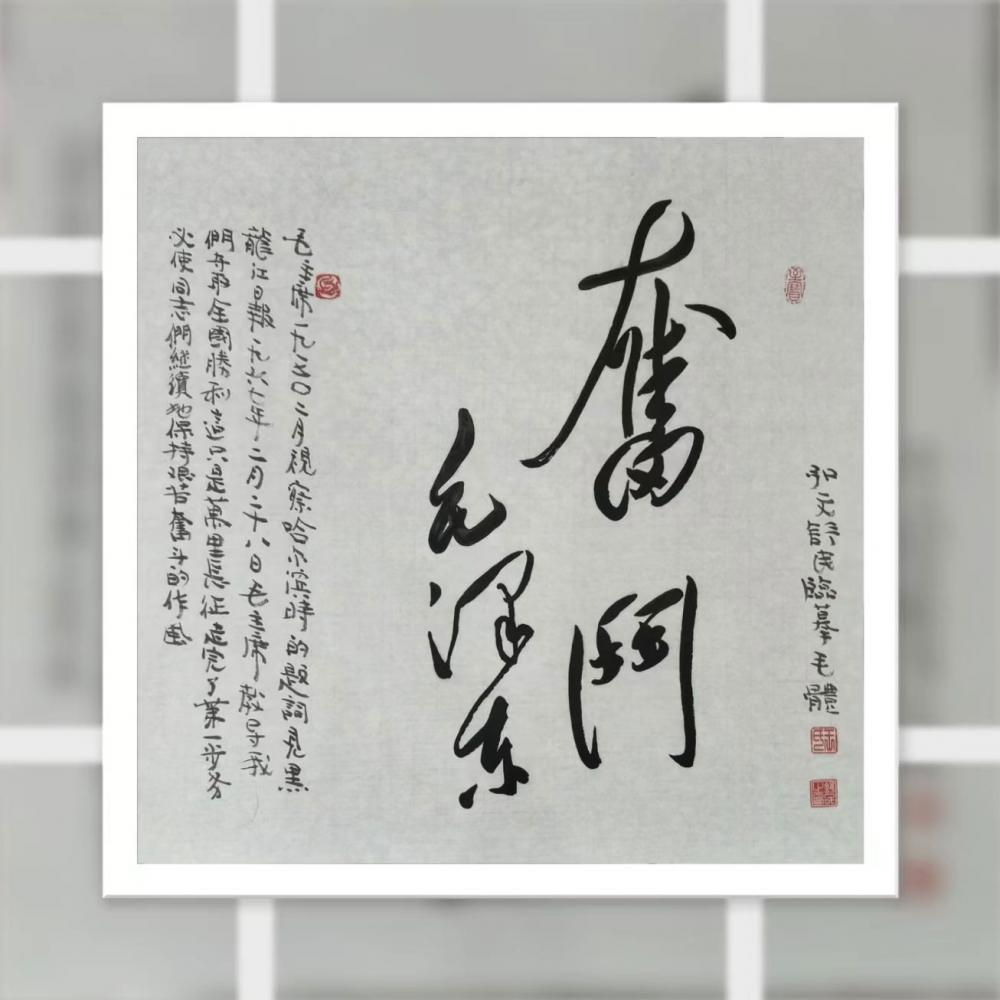 文舒民臨摹毛體
奮鬥
毛泽东
毛主席一九五〇二月視察哈尔滨時的題詞見黑
龍江日報一九六七年二月二十八日毛主席教导我
們夺取全國勝利這只是萬里長征走完了第一步务
必使同志們继續地保持艰苦奮斗的作風